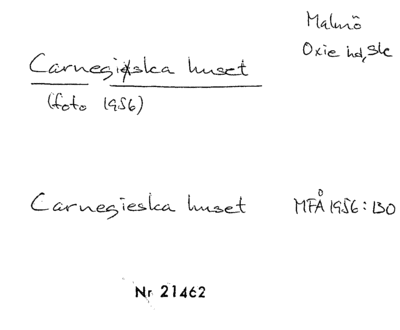 Malmö
Oxie hd, Sk
Carnegieska huset
(foto 1956)
Carnegieska huset MFÅ 1956:130
Nr 21462